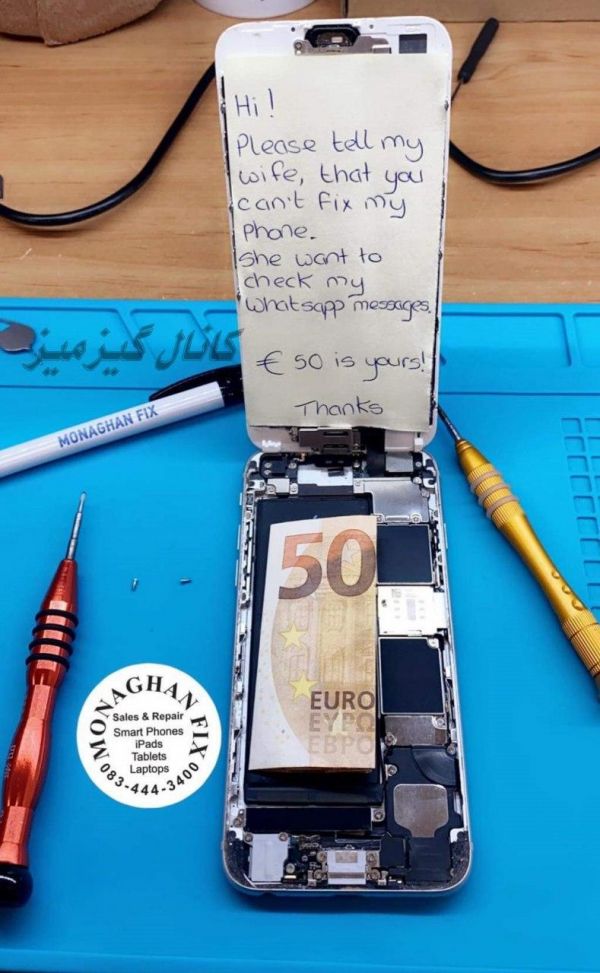 Hi!
Please tell my
wife, that you
can't fix my
Phone.
She want to
check my
Whatsapp messages.
€ 50 is yours!
Thanks
کانال گیزمیز
MONAGHAN FIX
50
EURO
ΕΥΡΩ
ЕВРО
MONAGHAN FIX
Sales & Repair
Smart Phones
iPads
Tablets
Laptops
083-444-3400